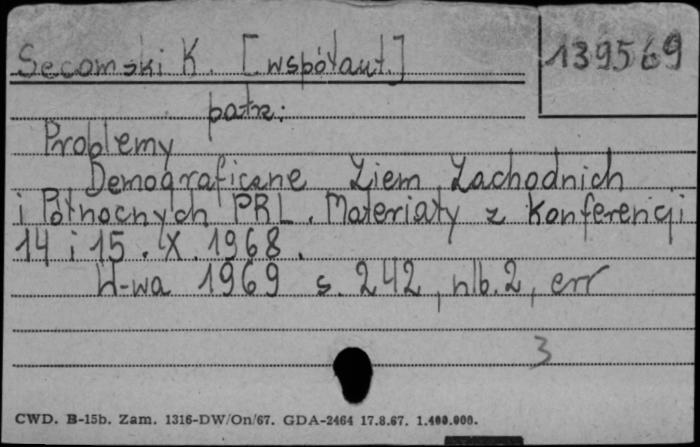 Secomski K. [współaut.]
139569
patrz:
Problemy
Demograficzne Ziem Zachodnich
i Północnych PRL. Materiały z Konferencji
14 i 15.X.1968.
W-wa 1969 s. 242, nlb. 2, err
3
CWD. B-15b. Zam. 1316-DW/On/67. GDA-2464 17.8.67. 1.400.000.